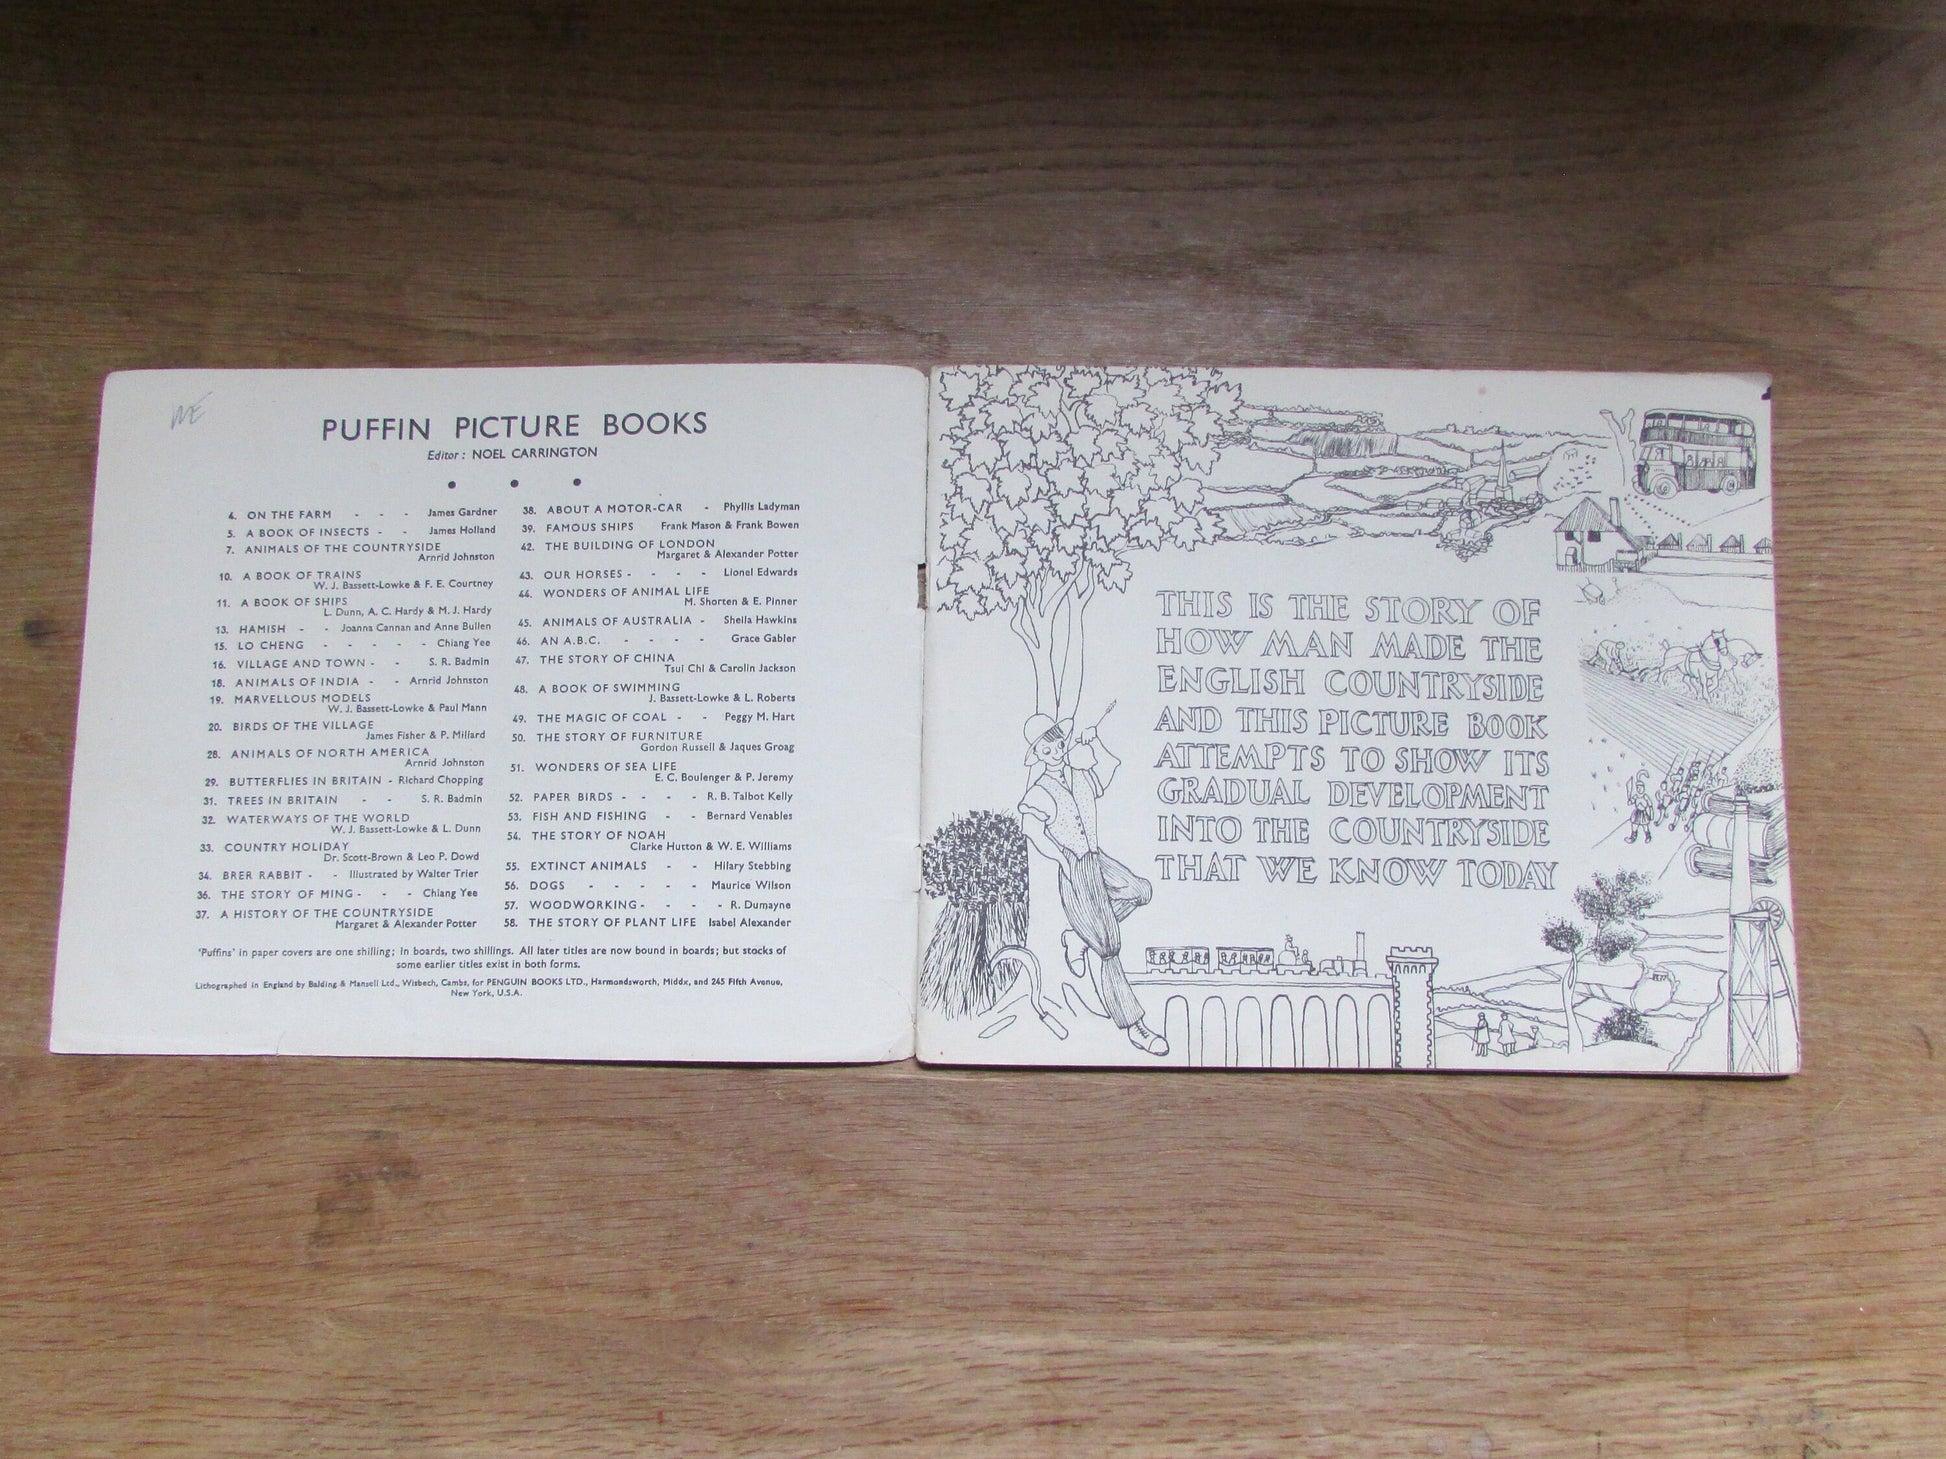 PUFFIN PICTURE BOOKS
Editor: NOEL CARRINGTON
4. ON THE FARM - - - James Gardner
5. A BOOK OF INSECTS - - James Holland
7. ANIMALS OF THE COUNTRYSIDE
Arnrid Johnston
10. A BOOK OF TRAINS
W. J. Bassett-Lowke & F. E. Courtney
11. A BOOK OF SHIPS
L. Dunn, A. C. Hardy & M. J. Hardy
13. HAMISH - - Joanna Cannan and Anne Bullen
15. LO CHENG - - - - - Chiang Yee
16. VILLAGE AND TOWN - - S. R. Badmin
18. ANIMALS OF INDIA - - Arnrid Johnston
19. MARVELLOUS MODELS
W. J. Bassett-Lowke & Paul Mann
20. BIRDS OF THE VILLAGE
James Fisher & P. Millard
28. ANIMALS OF NORTH AMERICA
Arnrid Johnston
29. BUTTERFLIES IN BRITAIN - Richard Chopping
31. TREES IN BRITAIN - - S. R. Badmin
32. WATERWAYS OF THE WORLD
W. J. Bassett-Lowke & L. Dunn
33. COUNTRY HOLIDAY
Dr. Scott-Brown & Leo P. Dowd
34. BRER RABBIT - - Illustrated by Walter Trier
36. THE STORY OF MING - - - Chiang Yee
37. A HISTORY OF THE COUNTRYSIDE
Margaret & Alexander Potter
38. ABOUT A MOTOR-CAR - Phyllis Ladyman
39. FAMOUS SHIPS Frank Mason & Frank Bowen
42. THE BUILDING OF LONDON
Margaret & Alexander Potter
43. OUR HORSES - - - - Lionel Edwards
44. WONDERS OF ANIMAL LIFE
M. Shorten & E. Pinner
45. ANIMALS OF AUSTRALIA - Sheila Hawkins
46. AN A.B.C. - - - - Grace Gabler
47. THE STORY OF CHINA
Tsui Chi & Carolin Jackson
48. A BOOK OF SWIMMING
J. Bassett-Lowke & L. Roberts
49. THE MAGIC OF COAL - - Peggy M. Hart
50. THE STORY OF FURNITURE
Gordon Russell & Jaques Groag
51. WONDERS OF SEA LIFE
E. C. Boulenger & P. Jeremy
52. PAPER BIRDS - - - - R. B. Talbot Kelly
53. FISH AND FISHING - - Bernard Venables
54. THE STORY OF NOAH
Clarke Hutton & W. E. Williams
55. EXTINCT ANIMALS - - Hilary Stebbing
56. DOGS - - - - - Maurice Wilson
57. WOODWORKING - - - - R. Dumayne
58. THE STORY OF PLANT LIFE Isabel Alexander
'Puffins' in paper covers are one shilling; in boards, two shillings. All later titles are now bound in boards; but stocks of
some earlier titles exist in both forms.
Lithographed in England by Balding & Mansell Ltd., Wisbech, Cambs, for PENGUIN BOOKS LTD., Harmondsworth, Middx, and 245 Fifth Avenue,
New York, U.S.A.
THIS IS THE STORY OF
HOW MAN MADE THE
ENGLISH COUNTRYSIDE
AND THIS PICTURE BOOK
ATTEMPTS TO SHOW ITS
GRADUAL DEVELOPMENT
INTO THE COUNTRYSIDE
THAT WE KNOW TODAY